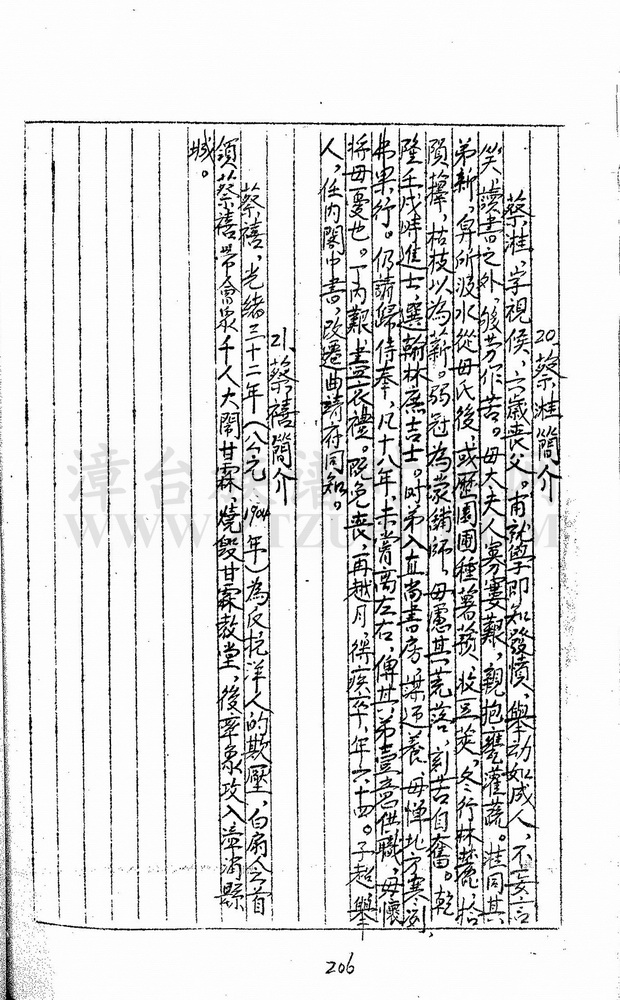 20、蔡洼簡介
蔡洼，字視侯，六歲喪父。甫就學即知發憤，舉动如成人，不妄言
笑，讀書之外，够劳作苦。母太夫人寡婁艱，親抱甕灌蔬。洼同其
弟新，舁所汲水從母氏後，或歷園圃種薯蕷，收豆莢，冬行林麓，拾
隕蘀，枯枝以為薪。弱冠為蒙館師，母慮其荒落，刻苦自奮。乾
隆壬戌進士，選翰林庶吉士。时弟入直尚書房，梁迎養，母惮北方寒冽，
弗果行。仍請歸侍奉，凡十八年，未嘗离左右，傅其弟壹意供職，毋懷
將母憂也。丁内艱，盡哀禮。既免喪，再越月，得疾卒，年六十四。子超舉
人，任内閣中書，改遷曲靖府同知。
21、蔡禧簡介
蔡禧，光緒三十二年（公元1904年）為反抗洋人的欺壓，白扇会首
領蔡禧带會眾千人大閙甘霖，燒毀甘霖教堂，後率眾攻入漳浦縣
城。
206
漳台族譜
WWW.ZTZUPU.COM